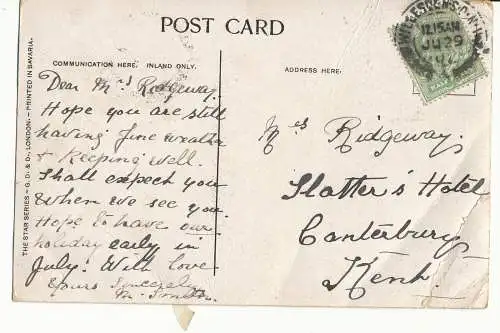 POST CARD
COMMUNICATION HERE. INLAND ONLY.
ADDRESS HERE:
THE STAR SERIES – G. D. & D., LONDON. – PRINTED IN BAVARIA.
12.15AM
JU 29
Dear Mrs Ridgeway.
Hope you are still
having fine weather
& Keeping well.
Shall expect you
when we see you.
Hope to have our
holiday early in
July. With love
Yours Sincerely
Mrs Ridgeway.
Slatter's Hotel
Canterbury
Kent.